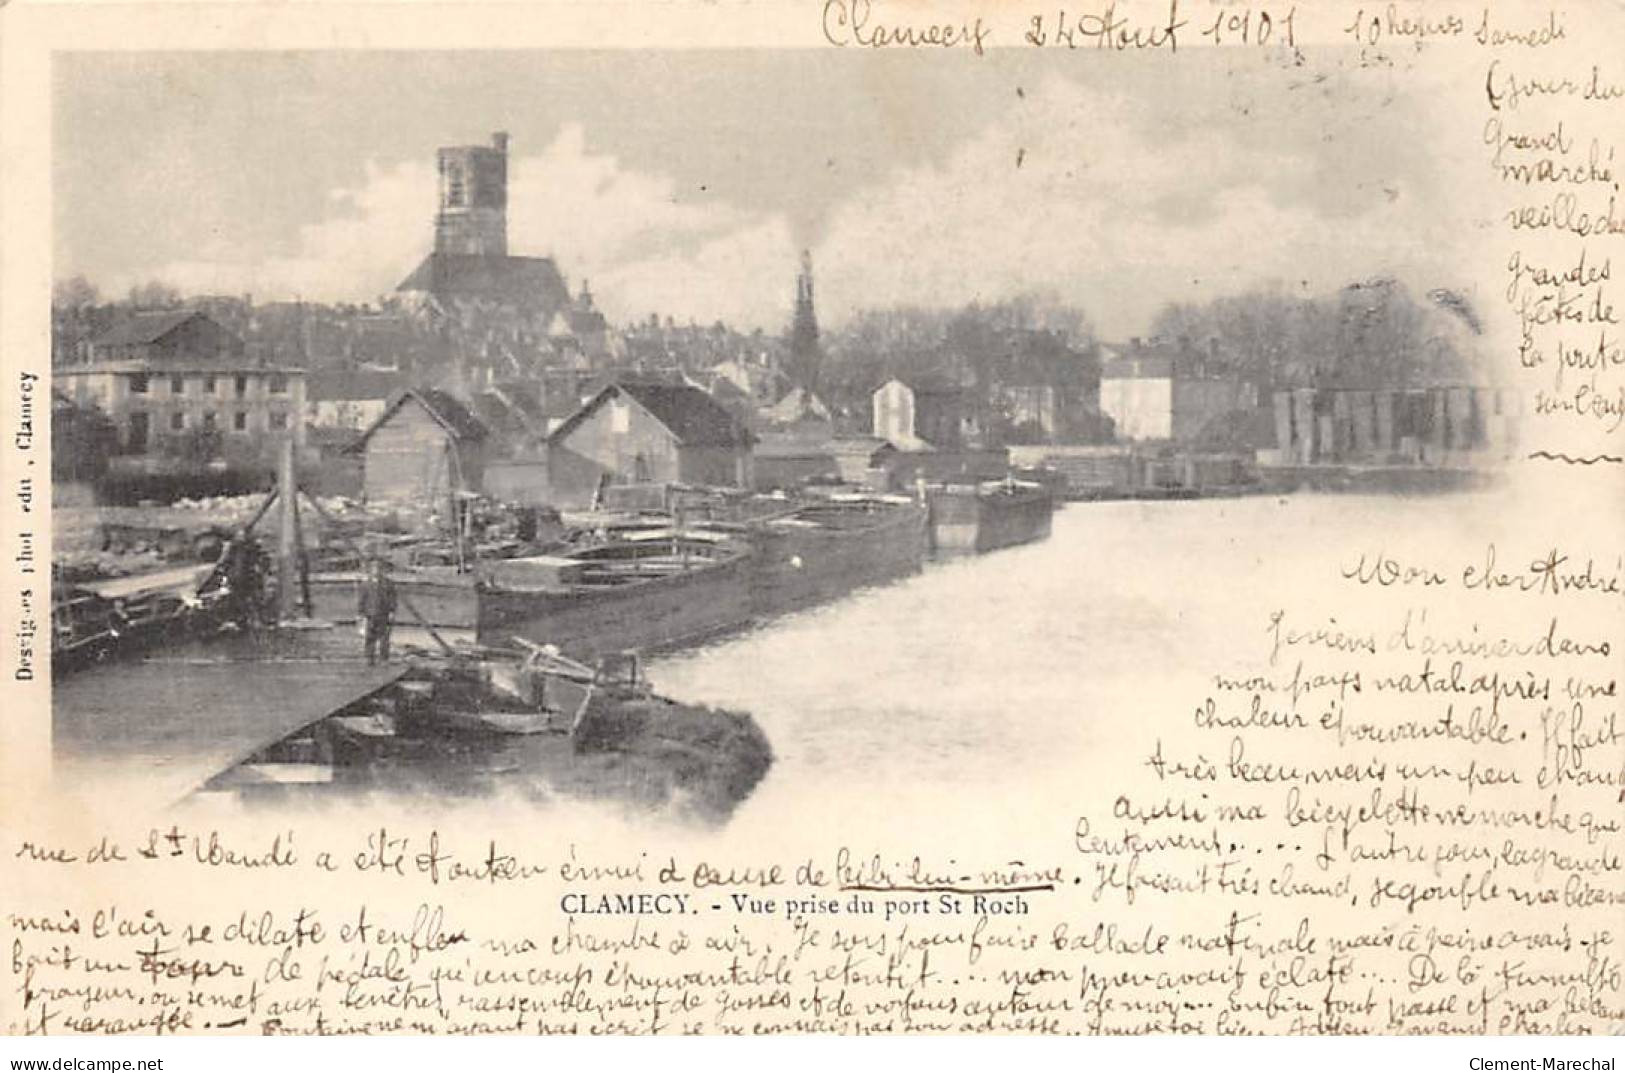 Clamecy 24 Aout 1901 10 heures Samedi
(jour du
grand
marché,
veille des
grandes
fêtes de
la joute
sur l'eau)
Dessignes phot. édit, Clamecy
Mon cher André,
Je viens d'arriver dans
mon pays natal après une
chaleur épouvantable. Il fait
très beau, mais un peu chaud
aussi ma bicyclette ne marche que
lentement..... L'autre jour, la grande
rue de St a été tout en émoi à cause de bibi lui-même. Il faisait très chaud, je gonfle ma bécane
CLAMECY. - Vue prise du port St Roch
mais l'air se dilate et enfle ma chambre à air. Je sors pour faire ballade matinale mais à peine avais-je
fait un de pédale, qu'un coup épouvantable retentit.... mon pneu avait éclaté... De là tumulte
frayeur, on se met aux fenêtres, rassemblement de gosses et de voyous autour de moi... enfin tout passe et ma bécane
est rarangée. — m'ayant pas écrit je ne connais pas son adresse.. Amuse toi bien. Adieu. Charles
delcampe.net
Clement-Marechal